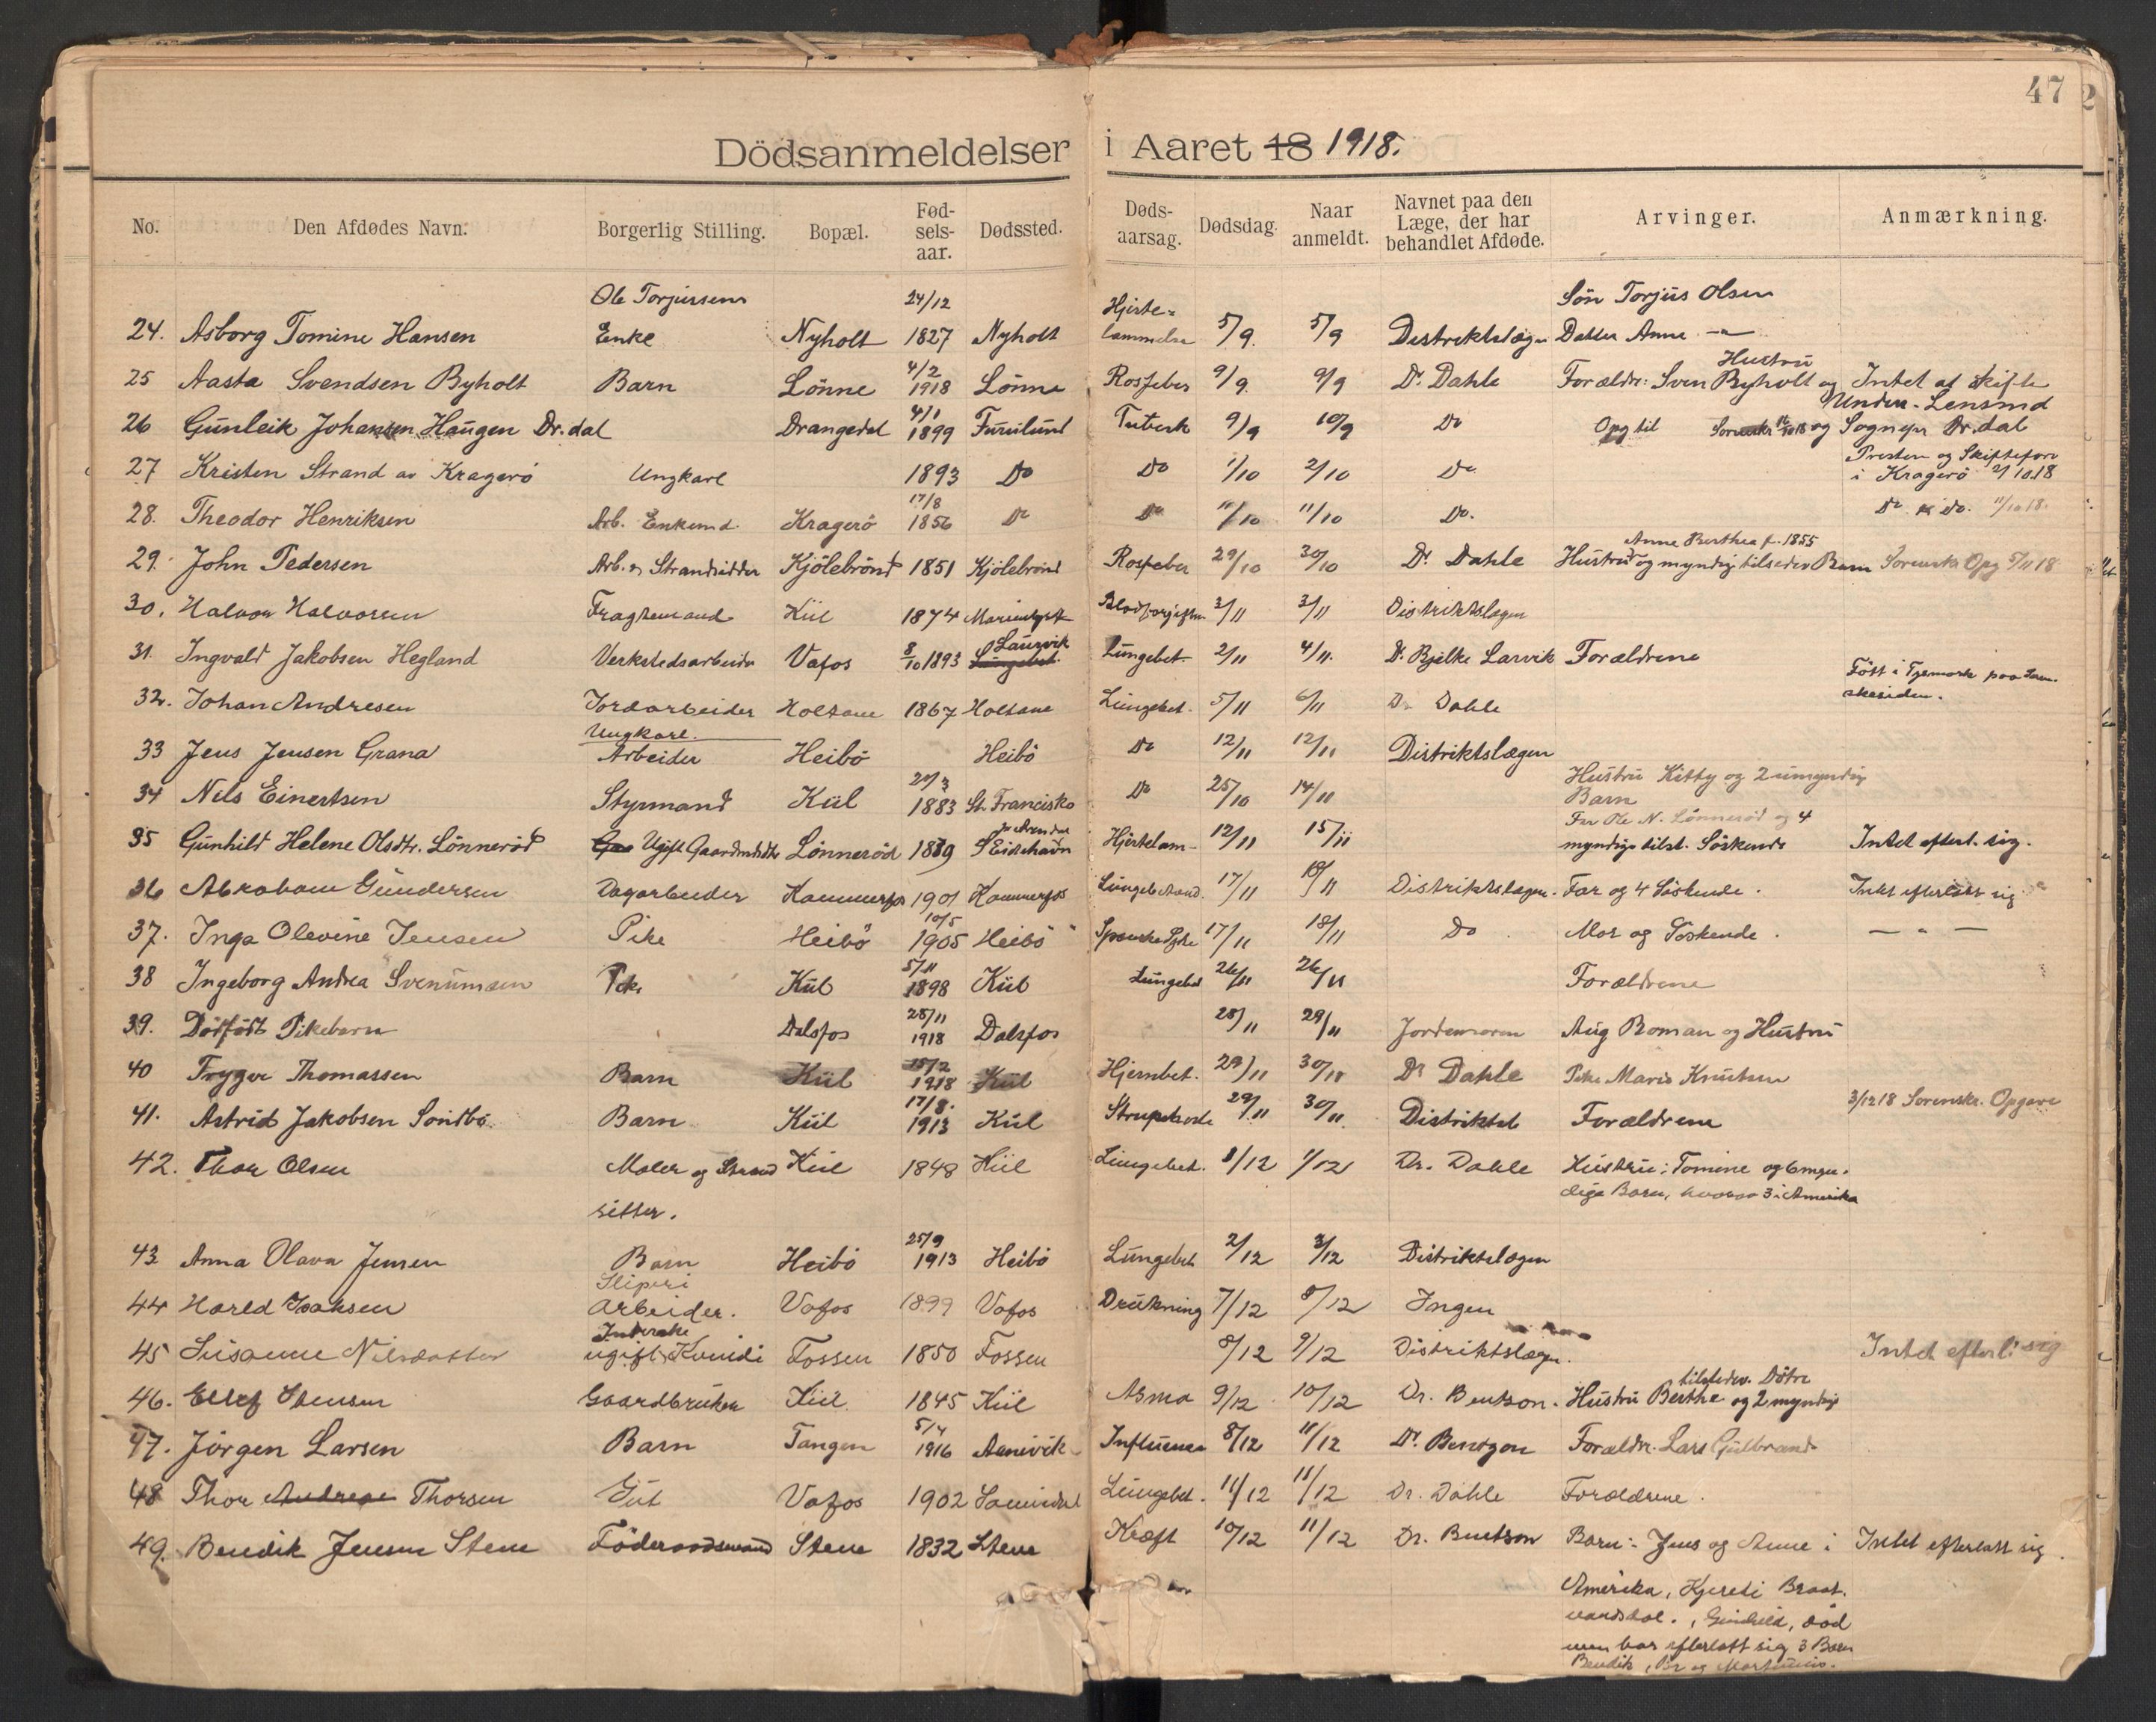 47
Dödsanmeldelser i Aaret 18 1918.
No. Den Afdødes Navn. Borgerlig Stilling. Bopæl. Fødselsaar. Dødssted. Dødsaarsag. Dødsdag. Naar anmeldt. Navnet paa den Læge, der har behandlet Afdøde. Arvinger. Anmærkning.
Ole Torjussens 24/12 Hjerte= Sön Torjus Olsen
24. Asborg Tomine Hansen Enke Nyholt 1827 Nyholt lammelse 5/9. 5/9 Distriktslægen Datter Anne —"—
4/2 Hustru
25 Aasta Svendsen Byholt Barn Lönne 1918 Lönne Rosfeber 9/9. 9/9 Dr. Dahle Forældr: Sven Byholt og Intet at skifte
4/1 Lensmd
26 Gunleik Johansen Haugen Dr.dal Drangedal 1899 Furulund Tuberk 9/9 10/9 Do Opg til og Sognepr Dr.dal
Presten og Skiftefor
27 Kristen Strand av Kragerö Ungkarl 1893 Do Do 1/10 2/10 Do i Kragerö 2/10 18
17/8
28. Theodor Henriksen Arb. Enkemd. Kragerö 1856 Do Do 11/10 11/10 Do. Do do. 11/10 18.
Anne Berthea f. 1855
29. John Pedersen Arb. & Strandsidder Kjölebrönd 1851 Kjölebrönd Rosfeber 29/10 30/10 Dr. Dahle Hustru og myndige tilstedev Barn Sorenskr Opg 5/11 18
30. Halvor Halvorsen Fragtemand Kiil 1874 Marienlyst Blodforgiftn 3/11 3/11 Distriktslægen
Laurvik
31. Ingvald Jakobsen Hegland Verkstedsarbeider Vafos 8/10 1893 Lungebet. Lungebet. 2/11 4/11. Dr. Bjelke Larvik Forældrene
Född i Tysmark paa
32. Johan Andresen Jordarbeider Holtane 1867 Holtane Lungebet. 5/11 6/11 Dr Dahle
Ungkarl.
33 Jens Jensen Grana Arbeider Heibö Heibö Do 12/11 12/11 Distriktslægen
Hustru Kitty og 2 umyndig
34 Nils Einertsen Styrmand Kiil 1883 St. Francisko Do 25/10 14/11 Barn
Far Ole N. Lönneröd og 4
35 Gunhilt Helene Olsdtr. Lönneröd Ugift Gaardmdsdtr Lönneröd Eidehavn Hjertelam- 12/11 15/11 myndige tilst. Söskende Intet efterl. sig.
36 Abraham Gundersen Dagarbeider Kammerfos 1901 Kammerfos 17/11 18/11 Distriktslægen. Far og 4 Söskende. Intet efterlatt sig
10/5
37. Inga Olevine Jensen Pike Heibö 1905 Heibö Spanske Syke 17/11 18/11 Do Mor og Söskende. — " —
5/11
38 Ingeborg Andrea Svenumsen Pike Kiil 1898 Kiil Lungebet 26/11 26/11 Forældrene
28/11
39. Dödfödt Pikebarn Dalsfos 1918 Dalsfos 28/11 29/11 Jordemoren Aug Roman og Hustru
15/2
40 Trygve Thomassen Barn Kiil 1918 Kiil Hjernbet. 29/11 30/11 Dr Dahle Pike Marie Knutsen
17/8. 3/12 18 Sorenskr. Opgave
41. Astrid Jakobsen Söndbö Barn Kiil 1913 Kiil Strupehoste 29/11 30/11 Distriktsl Forældrene
42. Thor Olsen Maler og Strand Kiil 1848 Kiil Lungebet. 1/12 Dr. Dahle Hustru: Tomine og 6 myn-
sitter. dige Barn, hvorav 3 i Amerika
25/9
43 Anna Olava Jensen Barn Heibö 1913 Heibö Lungebet 2/12 3/12 Distriktslægen
Sliperi
44 Harald Isaksen arbeider. Vafos 1899 Vafos Drukning 7/12 8/12 Ingen
45 Susanne Nilsdatter ugift Kvinde Fossen 1850 Fossen 8/12 9/12 Distriktslægen. Intet efterl. sig
tilstedev. Dötre
46. Ellef Stensen Gaardbruker Kiil 1845 Kiil Asma 9/12 10/12 Dr. Bentson. Hustru Berthe og 2 myndige
5/4
47. Jörgen Larsen Barn Tangen 1916 Influensa 8/12 11/12 Dr. Bentzon Forældr. Lars Gulbrands
48 Thor Andreas Thorsen Gut Vafos 1902 Lungebet. 11/12 11/12 Dr. Dahle Forældrene.
49. Bendik Jensen Stene Föderaadsmand Stene 1832 Stene Kræft 10/12 11/12 Dr. Bentson Barn: Jens og Anne i Intet efterlatt sig.
Amerika, Kjersti Braat.
Gunhild, död
men har efterlatt sig 3 Barn
Bendik, og